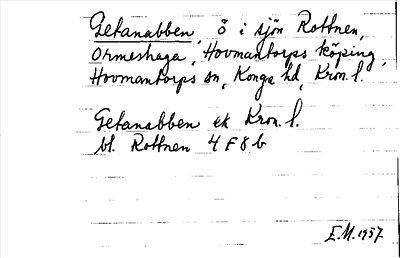 Getanabben, ö i sjön Rottnen,
Ormeshaga, Hovmantorps köping,
Hovmantorps sn, Konga hd, Kron. l.
Getanabben ek Kron. l.
bl. Rottnen 4 F 8 b
E.M. 1957